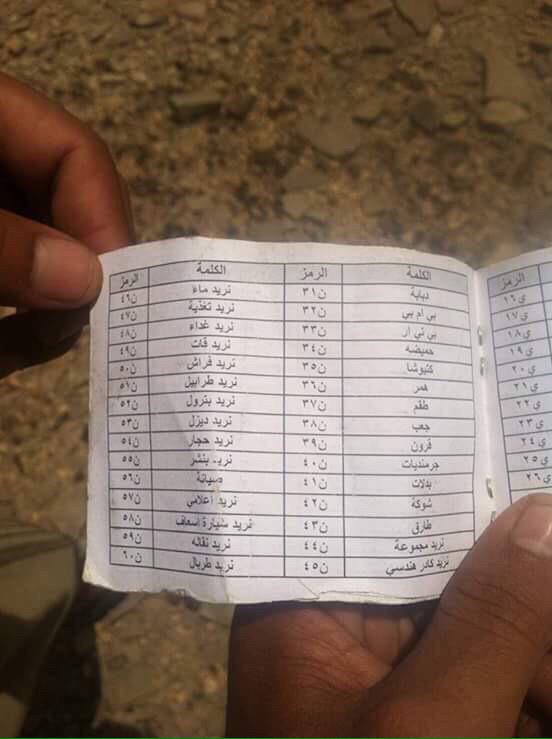 الرمز
ي١٦
ي١٧
ي١٨
ي١٩
ي٢٠
ي٢١
ي٢٢
ي٢٣
ي٢٤
ي٢٥
ي٢٦
الكلمة الرمز الكلمة الرمز
دبابة ن٣١ نريد ماء ن٤٦
بي ام بي ن٣٢ نريد تغذية ن٤٧
بي تي ار ن٣٣ نريد غداء ن٤٨
حميضه ن٣٤ نريد قات ن٤٩
كتيوشا ن٣٥ نريد فراش ن٥٠
همر ن٣٦ نريد طرابيل ن٥١
طقم ن٣٧ نريد بترول ن٥٢
جعب ن٣٨ نريد ديزل ن٥٣
قرون ن٣٩ نريد حجار ن٥٤
جرمنديات ن٤٠ نريد بنشر ن٥٥
بدلات ن٤١ صيانة ن٥٦
شوكة ن٤٢ نريد اعلامي ن٥٧
طارق ن٤٣ نريد سيارة اسعاف ن٥٨
نريد مجموعة ن٤٤ نريد نقاله ن٥٩
نريد كادر هندسي ن٤٥ نريد طربال ن٦٠